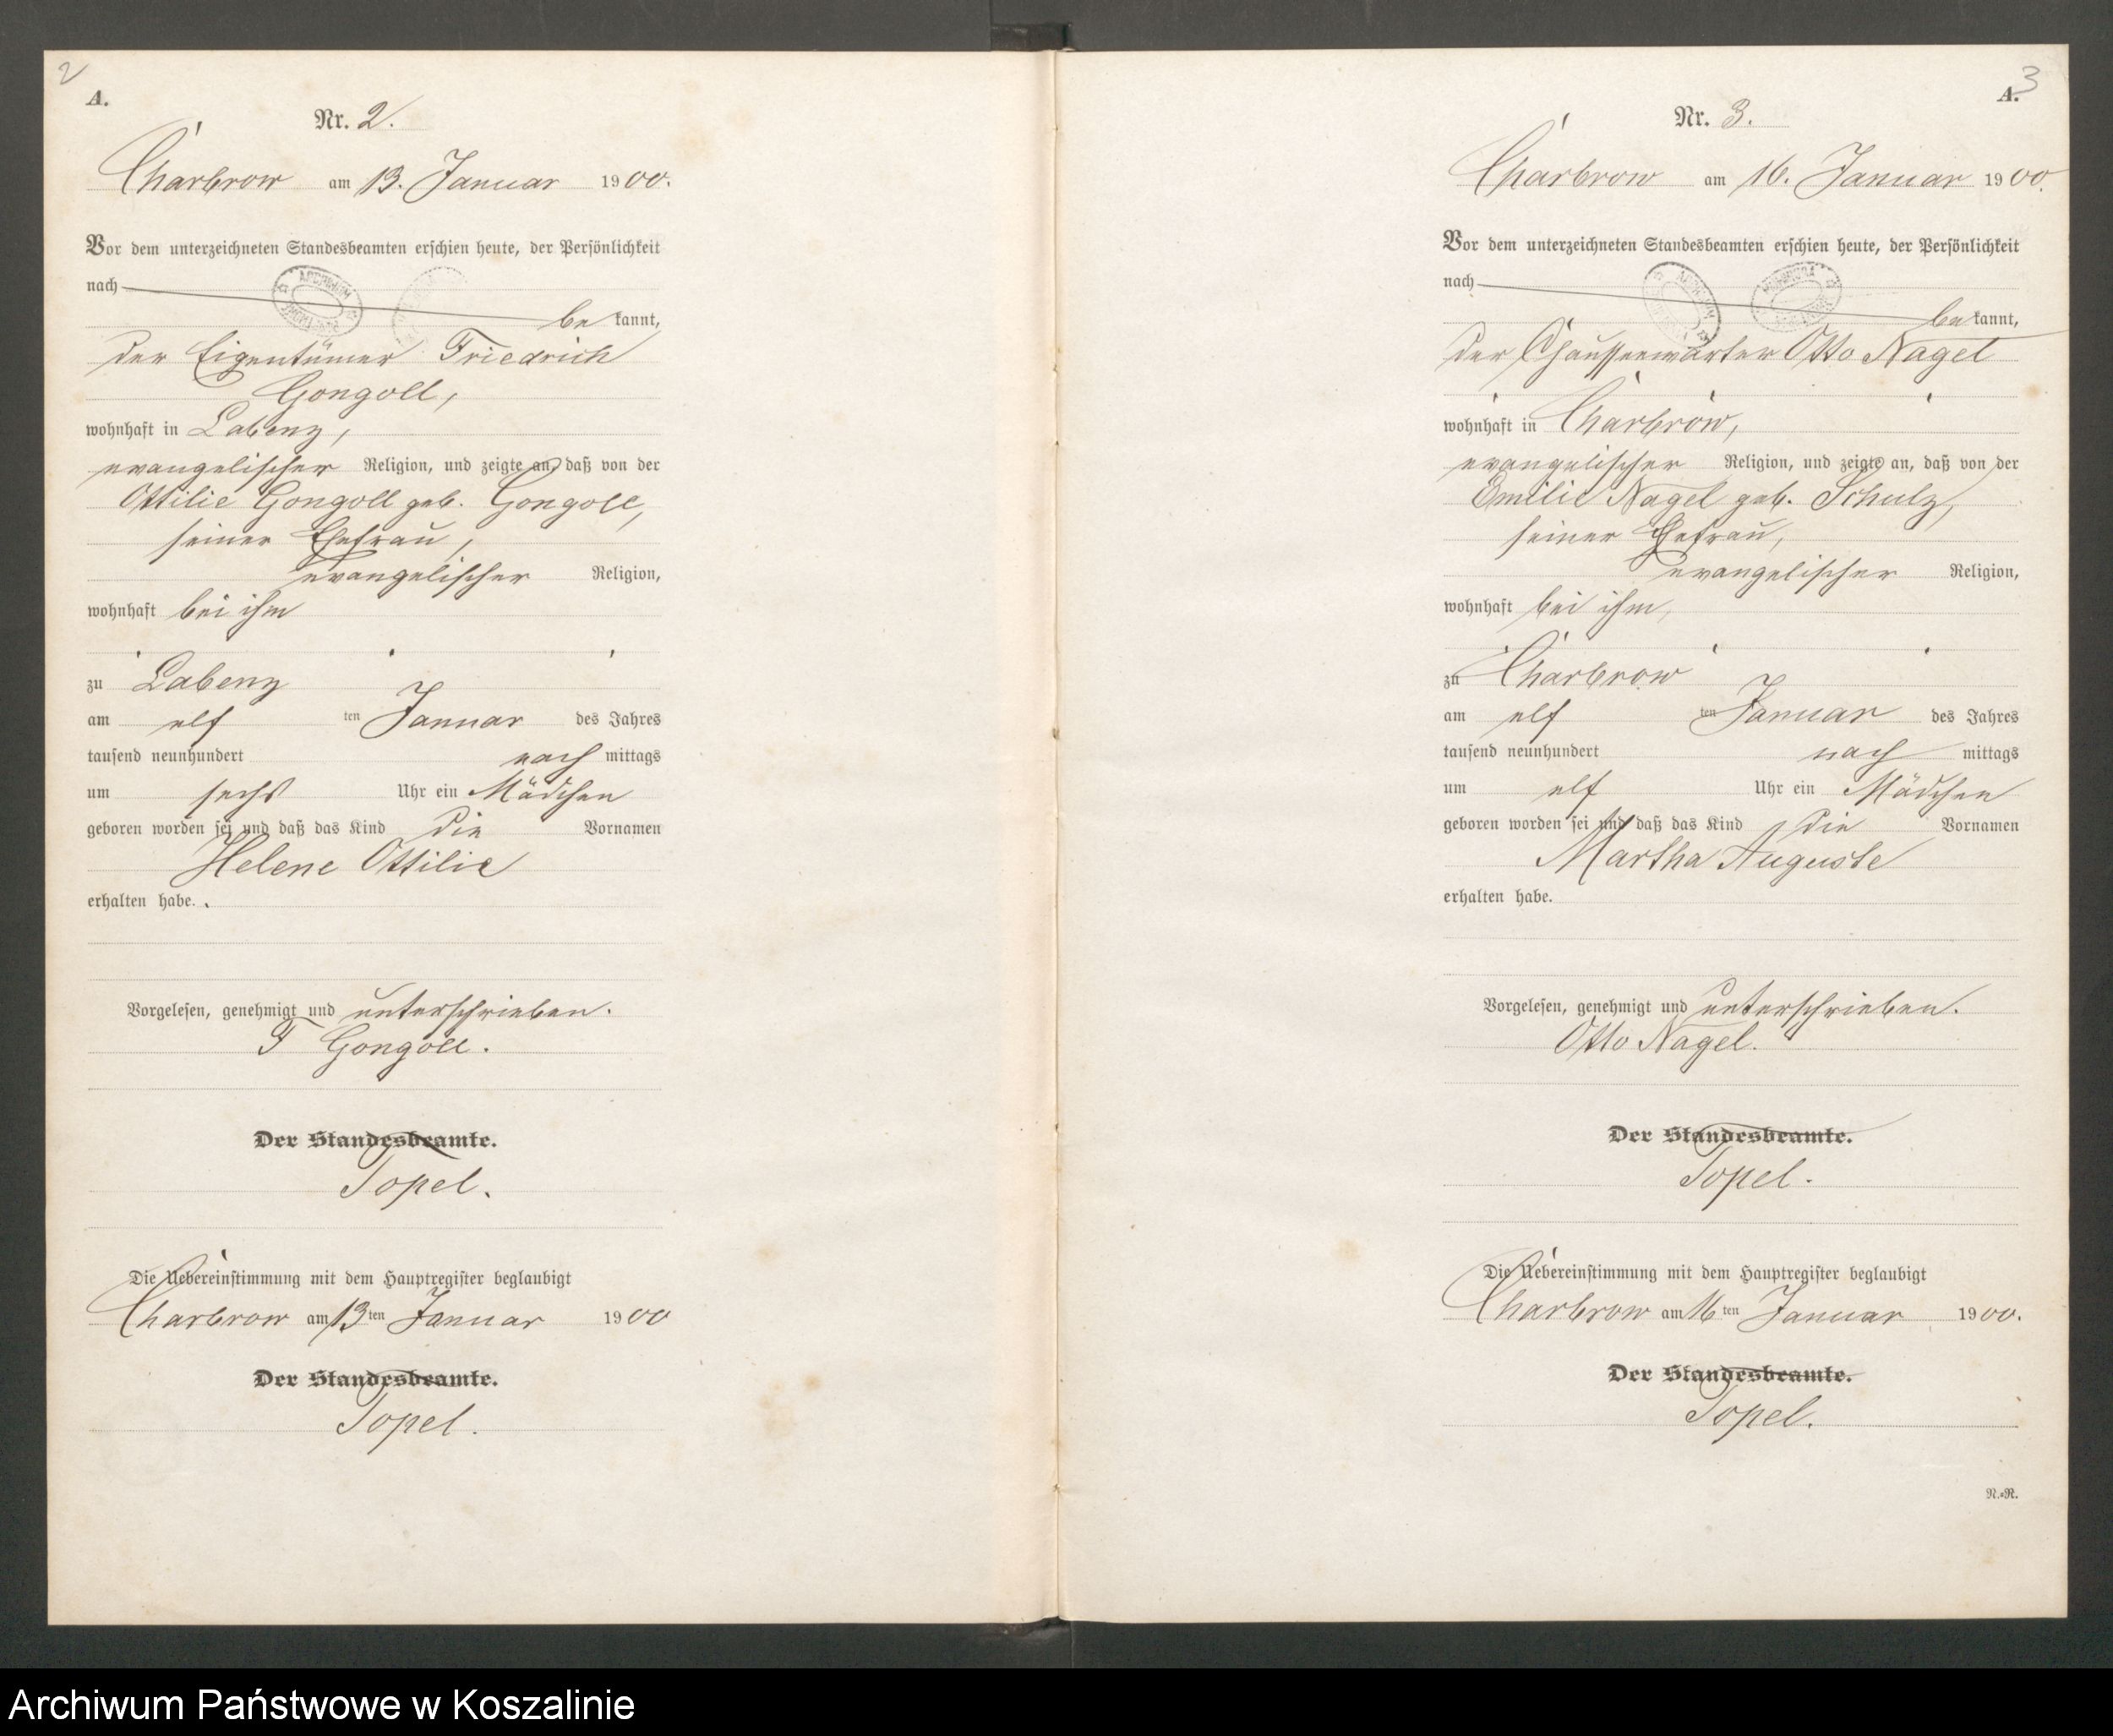 2
A.
Nr. 2.
Charbrow am 13. Januar 1900.
Vor dem unterzeichneten Standesbeamten erschien heute, der Persönlichkeit
nach
be kannt,
der Eigentümer Friedrich
Gongoll,
wohnhaft in Labenz,
evangelischer Religion, und zeigte an, daß von der
Ottilie Gongoll geb. Gongoll,
seiner Ehefrau,
evangelischer Religion,
wohnhaft bei ihm
zu Labenz
am elf ten Januar des Jahres
tausend neunhundert nach mittags
um sechs Uhr ein Mädchen
geboren worden sei und daß das Kind die Vornamen
Helene Ottilie
erhalten habe.
Vorgelesen, genehmigt und unterschrieben.
F Gongoll.
Der Standesbeamte.
Topel.
Die Uebereinstimmung mit dem Hauptregister beglaubigt
Charbrow am 13ten Januar 1900
Der Standesbeamte.
Topel.
3
A.
Nr. 3.
Charbrow am 16. Januar 1900.
Vor dem unterzeichneten Standesbeamten erschien heute, der Persönlichkeit
nach
be kannt,
der Chausseewärter Otto Nagel
wohnhaft in Charbrow,
evangelischer Religion, und zeigte an, daß von der
Emilie Nagel geb. Schulz,
seiner Ehefrau,
evangelischer Religion,
wohnhaft bei ihm,
zu Charbrow
am elf ten Januar des Jahres
tausend neunhundert nach mittags
um elf Uhr ein Mädchen
geboren worden sei und daß das Kind die Vornamen
Martha Auguste
erhalten habe.
Vorgelesen, genehmigt und unterschrieben.
Otto Nagel.
Der Standesbeamte.
Topel.
Die Uebereinstimmung mit dem Hauptregister beglaubigt
Charbrow am 16ten Januar 1900.
Der Standesbeamte.
Topel.
N.=R.
Archiwum Państwowe w Koszalinie